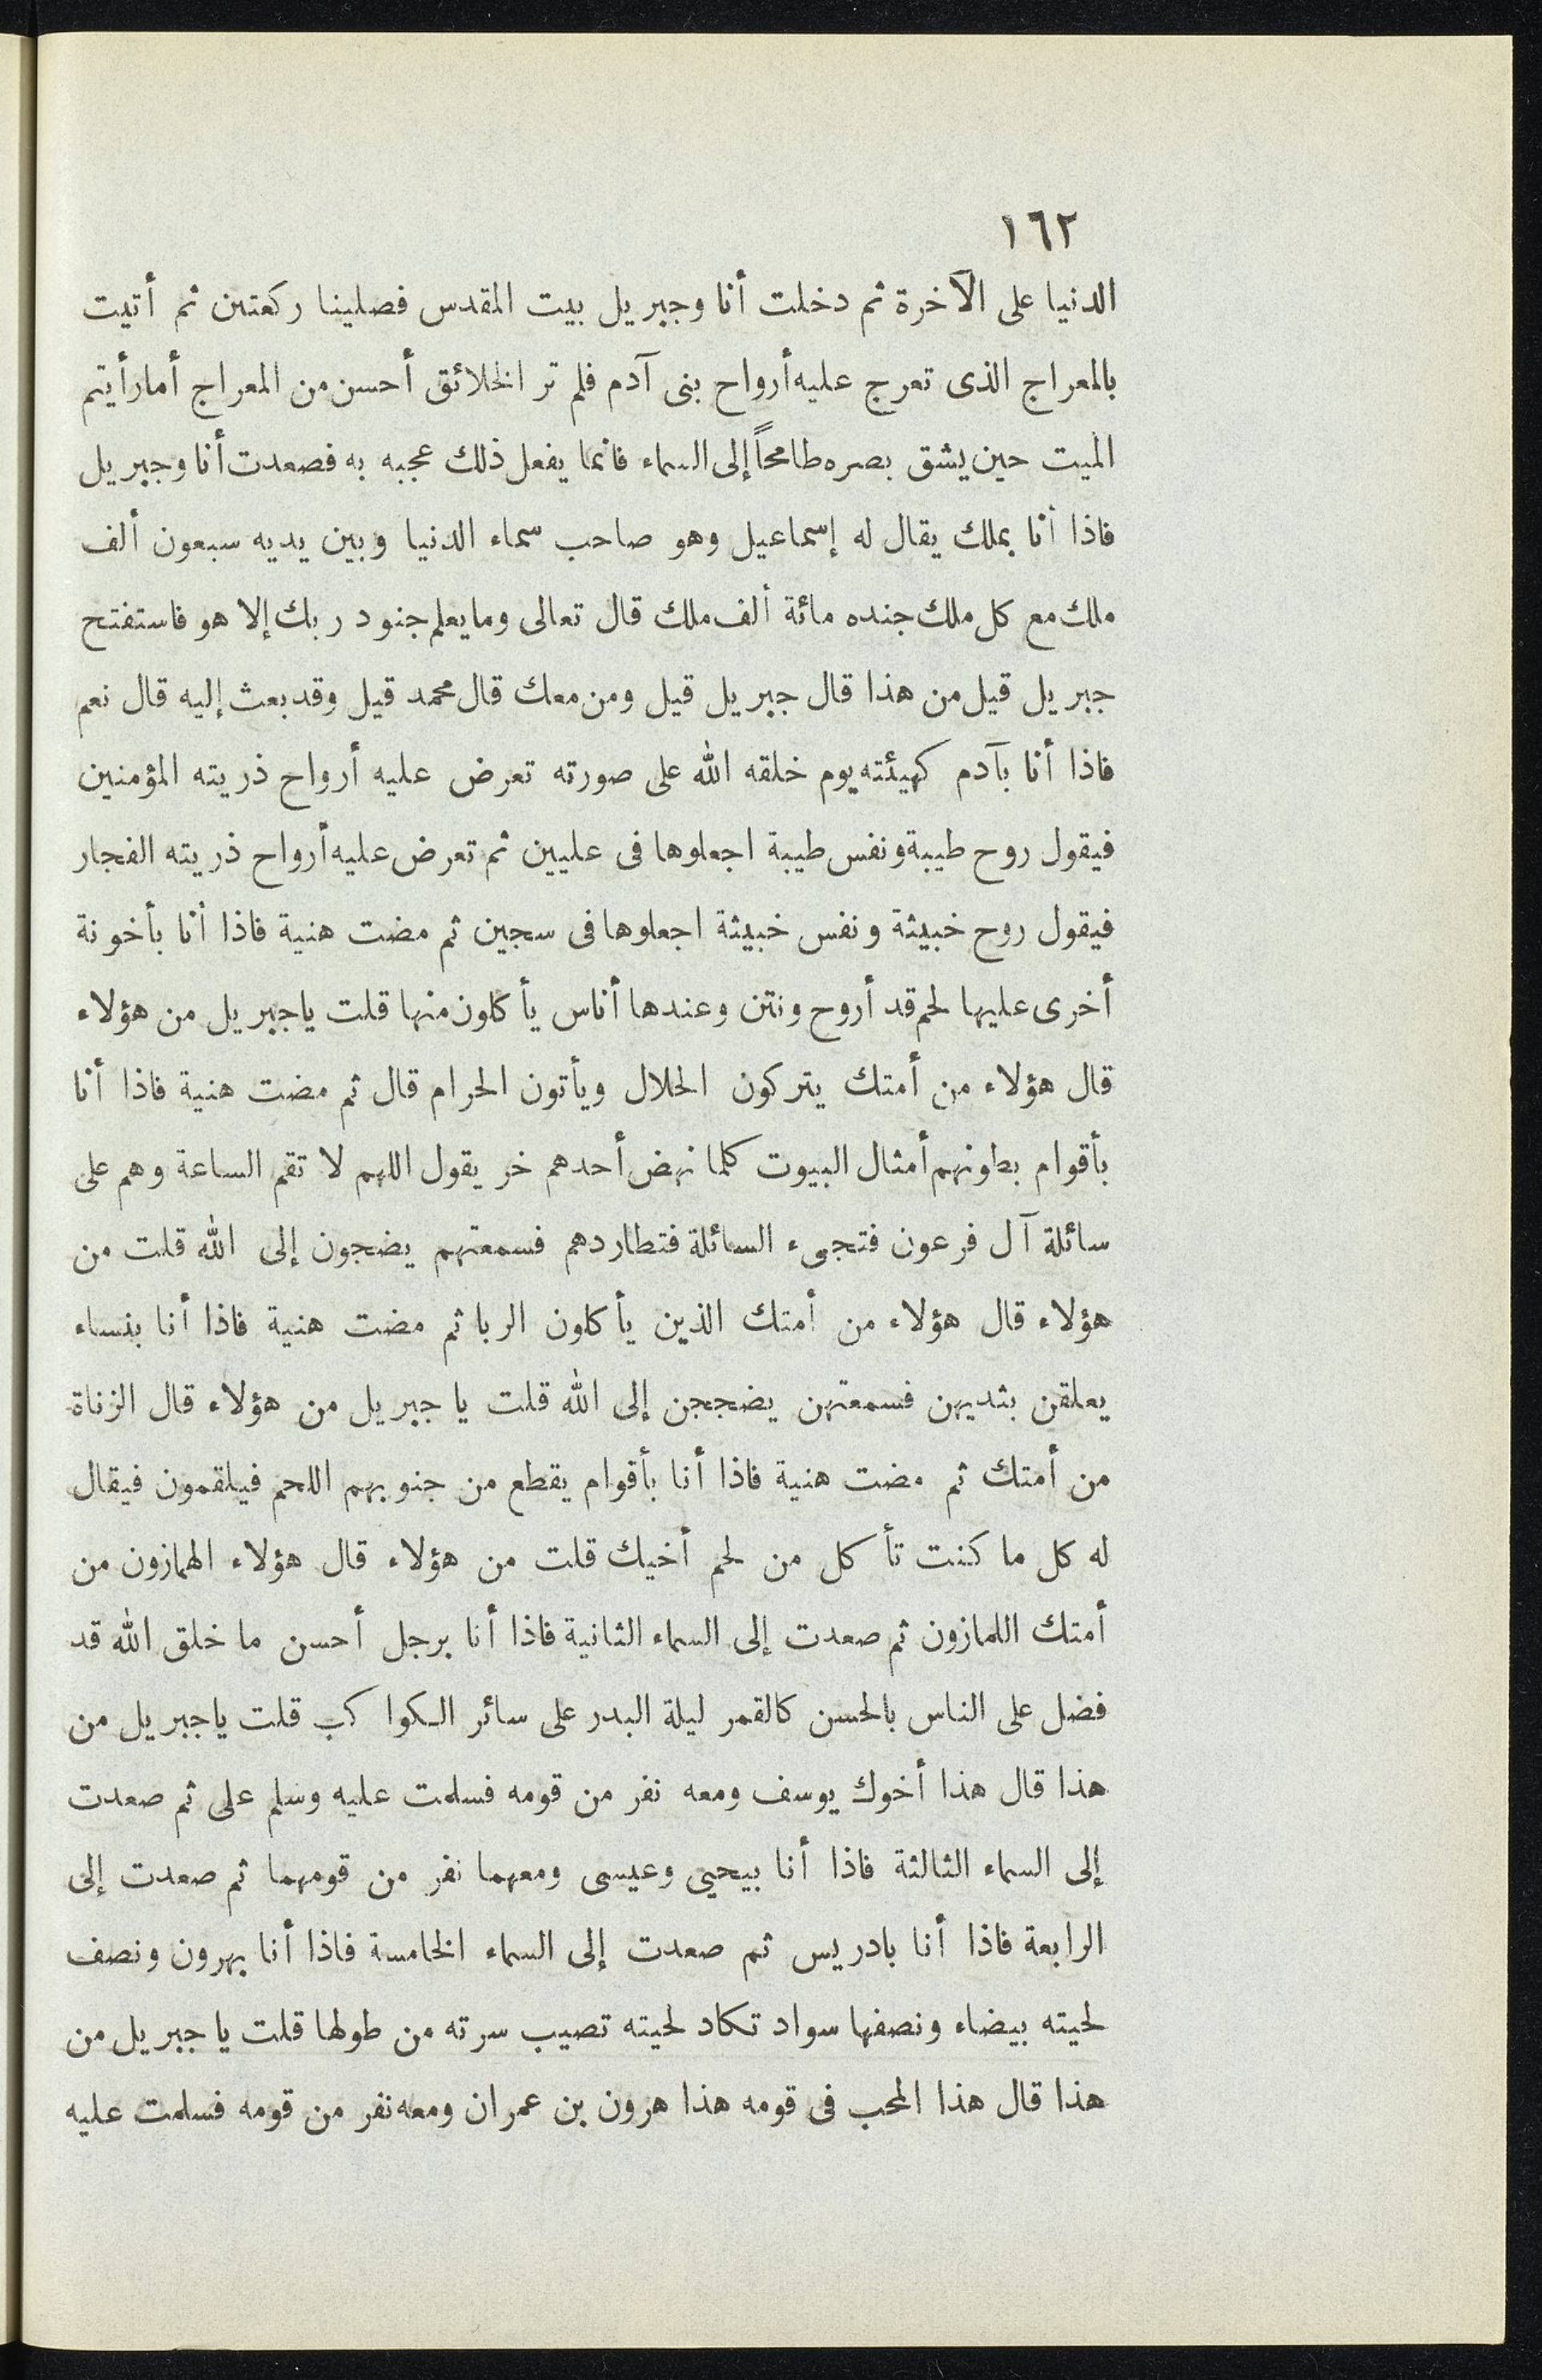 ١٦٢
الدنيا على الآخرة ثم دخلت أنا وجبريل بيت المقدس فصلينا ركعتين ثم أتيت
بالمعراج الذى تعرج عليه أرواح بنى آدم فلم تر الخلائق أحسن من المعراج أما رأيتم
الميت حين يشق بصره طامحاً إلى السماء فانما يفعل ذلك عجبه به فصعدت أنا وجبريل
فاذا أنا بملك يقال له إسماعيل وهو صاحب سماء الدنيا وبين يديه سبعون ألف
ملك مع كل ملك جنده مائة ألف ملك قال تعالى وما يعلم جنود ربك إلا هو فاستفتح
جبريل قيل من هذا قال جبريل قيل ومن معك قال محمد قيل وقد بعث إليه قال نعم
فاذا أنا بآدم كهيئته يوم خلقه الله على صورته تعرض عليه أرواح ذريته المؤمنين
فيقول روح طيبة ونفس طيبة اجعلوها فى عليين ثم تعرض عليه أرواح ذريته الفجار
فيقول روح خبيثة ونفس خبيثة اجعلوها فى سجين ثم مضت هنية فاذا أنا بأخونة
أخرى عليها لحم قد أروح ونتن وعندها أناس يأكلون منها قلت ياجبريل من هؤلاء
قال هؤلاء من أمتك يتركون الحلال ويأتون الحرام قال ثم مضت هنية فاذا أنا
بأقوام بطونهم أمثال البيوت كلما نهض أحدهم خر يقول اللهم لا تقم الساعة وهم على
سائلة آل فرعون فتجىء السائلة فتطاردهم فسمعتهم يضجون إلى الله قلت من
هؤلاء قال هؤلاء من أمتك الذين يأكلون الربا ثم مضت هنية فاذا أنا بنساء
يعلقن بثديهن فسمعتهن يضججن إلى الله قلت يا جبريل من هؤلاء قال الزناة
من أمتك ثم مضت هنية فاذا أنا بأقوام يقطع من جنوبهم اللحم فيلقمون فيقال
له كل ما كنت تأكل من لحم أخيك قلت من هؤلاء قال هؤلاء الهمازون من
أمتك اللمازون ثم صعدت إلى السماء الثانية فاذا أنا برجل أحسن ما خلق الله قد
فضل على الناس بالحسن كالقمر ليلة البدر على سائر الكواكب قلت ياجبريل من
هذا قال هذا أخوك يوسف ومعه نفر من قومه فسلمت عليه وسلم على ثم صعدت
إلى السماء الثالثة فاذا أنا بيحيى وعيسى ومعهما نفر من قومهما ثم صعدت إلى
الرابعة فاذا أنا بادريس ثم صعدت إلى السماء الخامسة فاذا أنا بهرون ونصف
لحيته بيضاء ونصفها سواد تكاد لحيته تصيب سرته من طولها قلت يا جبريل من
هذا قال هذا المحب فى قومه هذا هرون بن عمران ومعه نفر من قومه فسلمت عليه